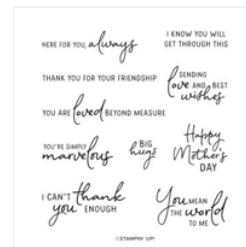 HERE FOR YOU, always
I KNOW YOU WILL
GET THROUGH THIS
THANK YOU FOR YOUR FRIENDSHIP
SENDING
love AND BEST
wishes
YOU ARE loved BEYOND MEASURE
YOU'RE SIMPLY
marvelous
BIG
hugs
Happy
Mother's
DAY
I CAN'T thank
you ENOUGH
You MEAN
THE world
TO ME
©STAMPIN' UP!